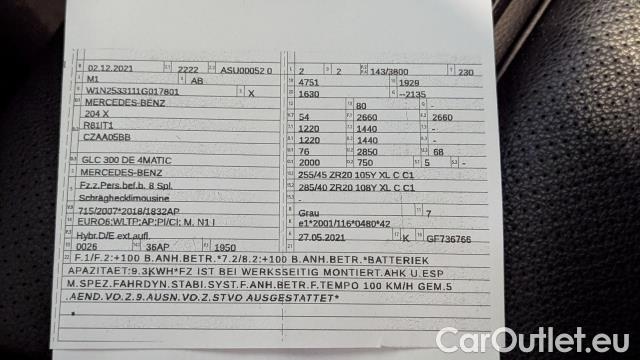 B 02.12.2021 2.1 2222 2.2 ASU00052 0
J M1 4 AB
E W1N2533111G017801 3 X
D.1 MERCEDES-BENZ
204 X
D.2 R81IT1
CZAA05BB
D.3 GLC 300 DE 4MATIC
2 MERCEDES-BENZ
5 Fz.z.Pers.bef.b. 8 Spl.
Schräghecklimousine
V.9 715/2007*2018/1832AP
14 EURO6;WLTP;AP;PI/CI; M, N1 I
P.3 Hybr.D/E ext.aufl.
10 0026 14.1 36AP P.1 1950
L 2 9 2 P.2/P.4 143/3800 T 230
18 4751 19 1929
20 1630 G --2135
12 - 13 80 Q -
V.7 54 F.1 2660 F.2 2660
7.1 1220 7.2 1440 7.3 -
8.1 1220 8.2 1440 8.3 -
U.1 76 U.2 2850 U.3 68
O.1 2000 O.2 750 S.1 5 S.2 -
15.1 255/45 ZR20 105Y XL C C1
15.2 285/40 ZR20 108Y XL C C1
15.3 -
R Grau 11 7
K e1*2001/116*0480*42
6 27.05.2021 17 K 16 GF736766
21
22 F.1/F.2:+100 B.ANH.BETR.*7.2/8.2:+100 B.ANH.BETR.*BATTERIEK
APAZITAET:9.3KWH*FZ IST BEI WERKSSEITIG MONTIERT.AHK U.ESP
M.SPEZ.FAHRDYN.STABI.SYST.F.ANH.BETR.F.TEMPO 100 KM/H GEM.5
.AEND.VO.Z.9.AUSN.VO.Z.STVO AUSGESTATTET*
CarOutlet.eu